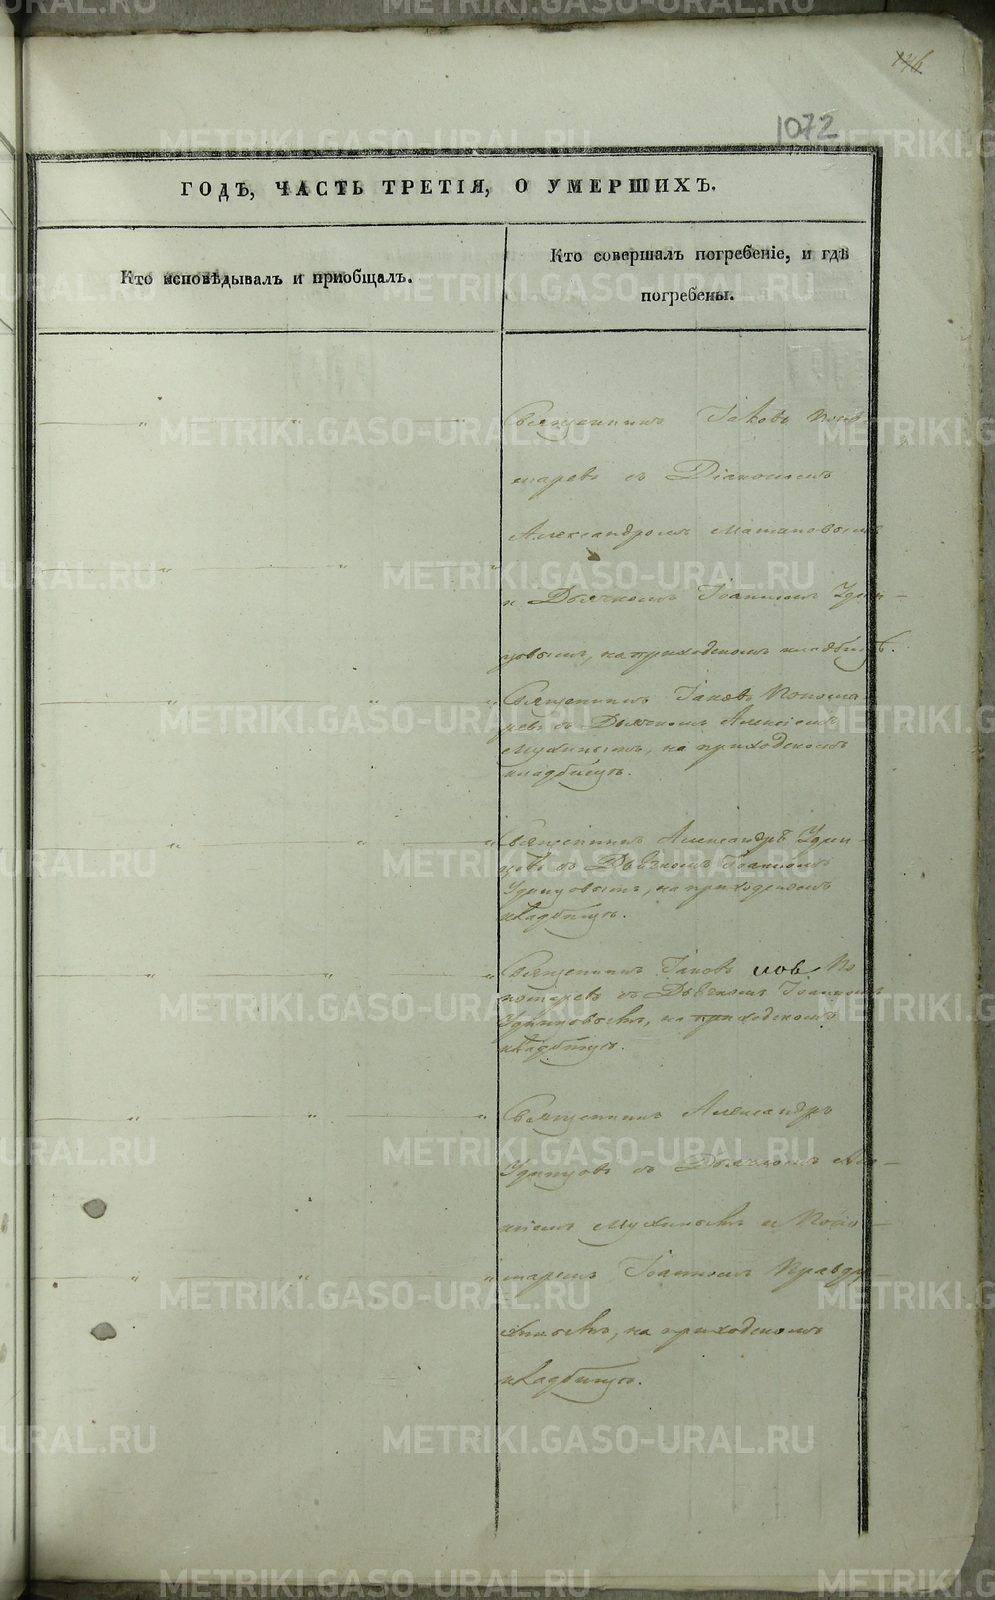 146
1072
ГОДЪ, ЧАСТЬ ТРЕТІЯ, О УМЕРШИХЪ.
Кто исповѣдывалъ и пріобщалъ.
Кто совершалъ погребеніе, и гдѣ
погребены.
Священникъ Іаковъ Поно-
маревъ съ Діакономъ
Александромъ
и Дьячкомъ Іоанномъ Удин-
цовымъ, на приходскомъ кладбищѣ.
Священникъ Іаковъ Понома
ревъ съ Дьячкомъ Алексіемъ
Мухинымъ, на приходскомъ
кладбищѣ.
Священникъ Александръ Удин-
цовъ съ Дьячкомъ Іоанномъ
Удинцовымъ, на приходскомъ
кладбищѣ.
Священникъ Іаковъ По
номаревъ съ Дьячкомъ Іоанномъ
Удинцовымъ, на приходскомъ
кладбищѣ.
Священникъ Александръ
Удинцовъ съ Дьячкомъ Але-
ксіемъ Мухинымъ и Поно-
маремъ Іоанномъ
на приходскомъ
кладбищѣ.
METRIKI.GASO-URAL.RU